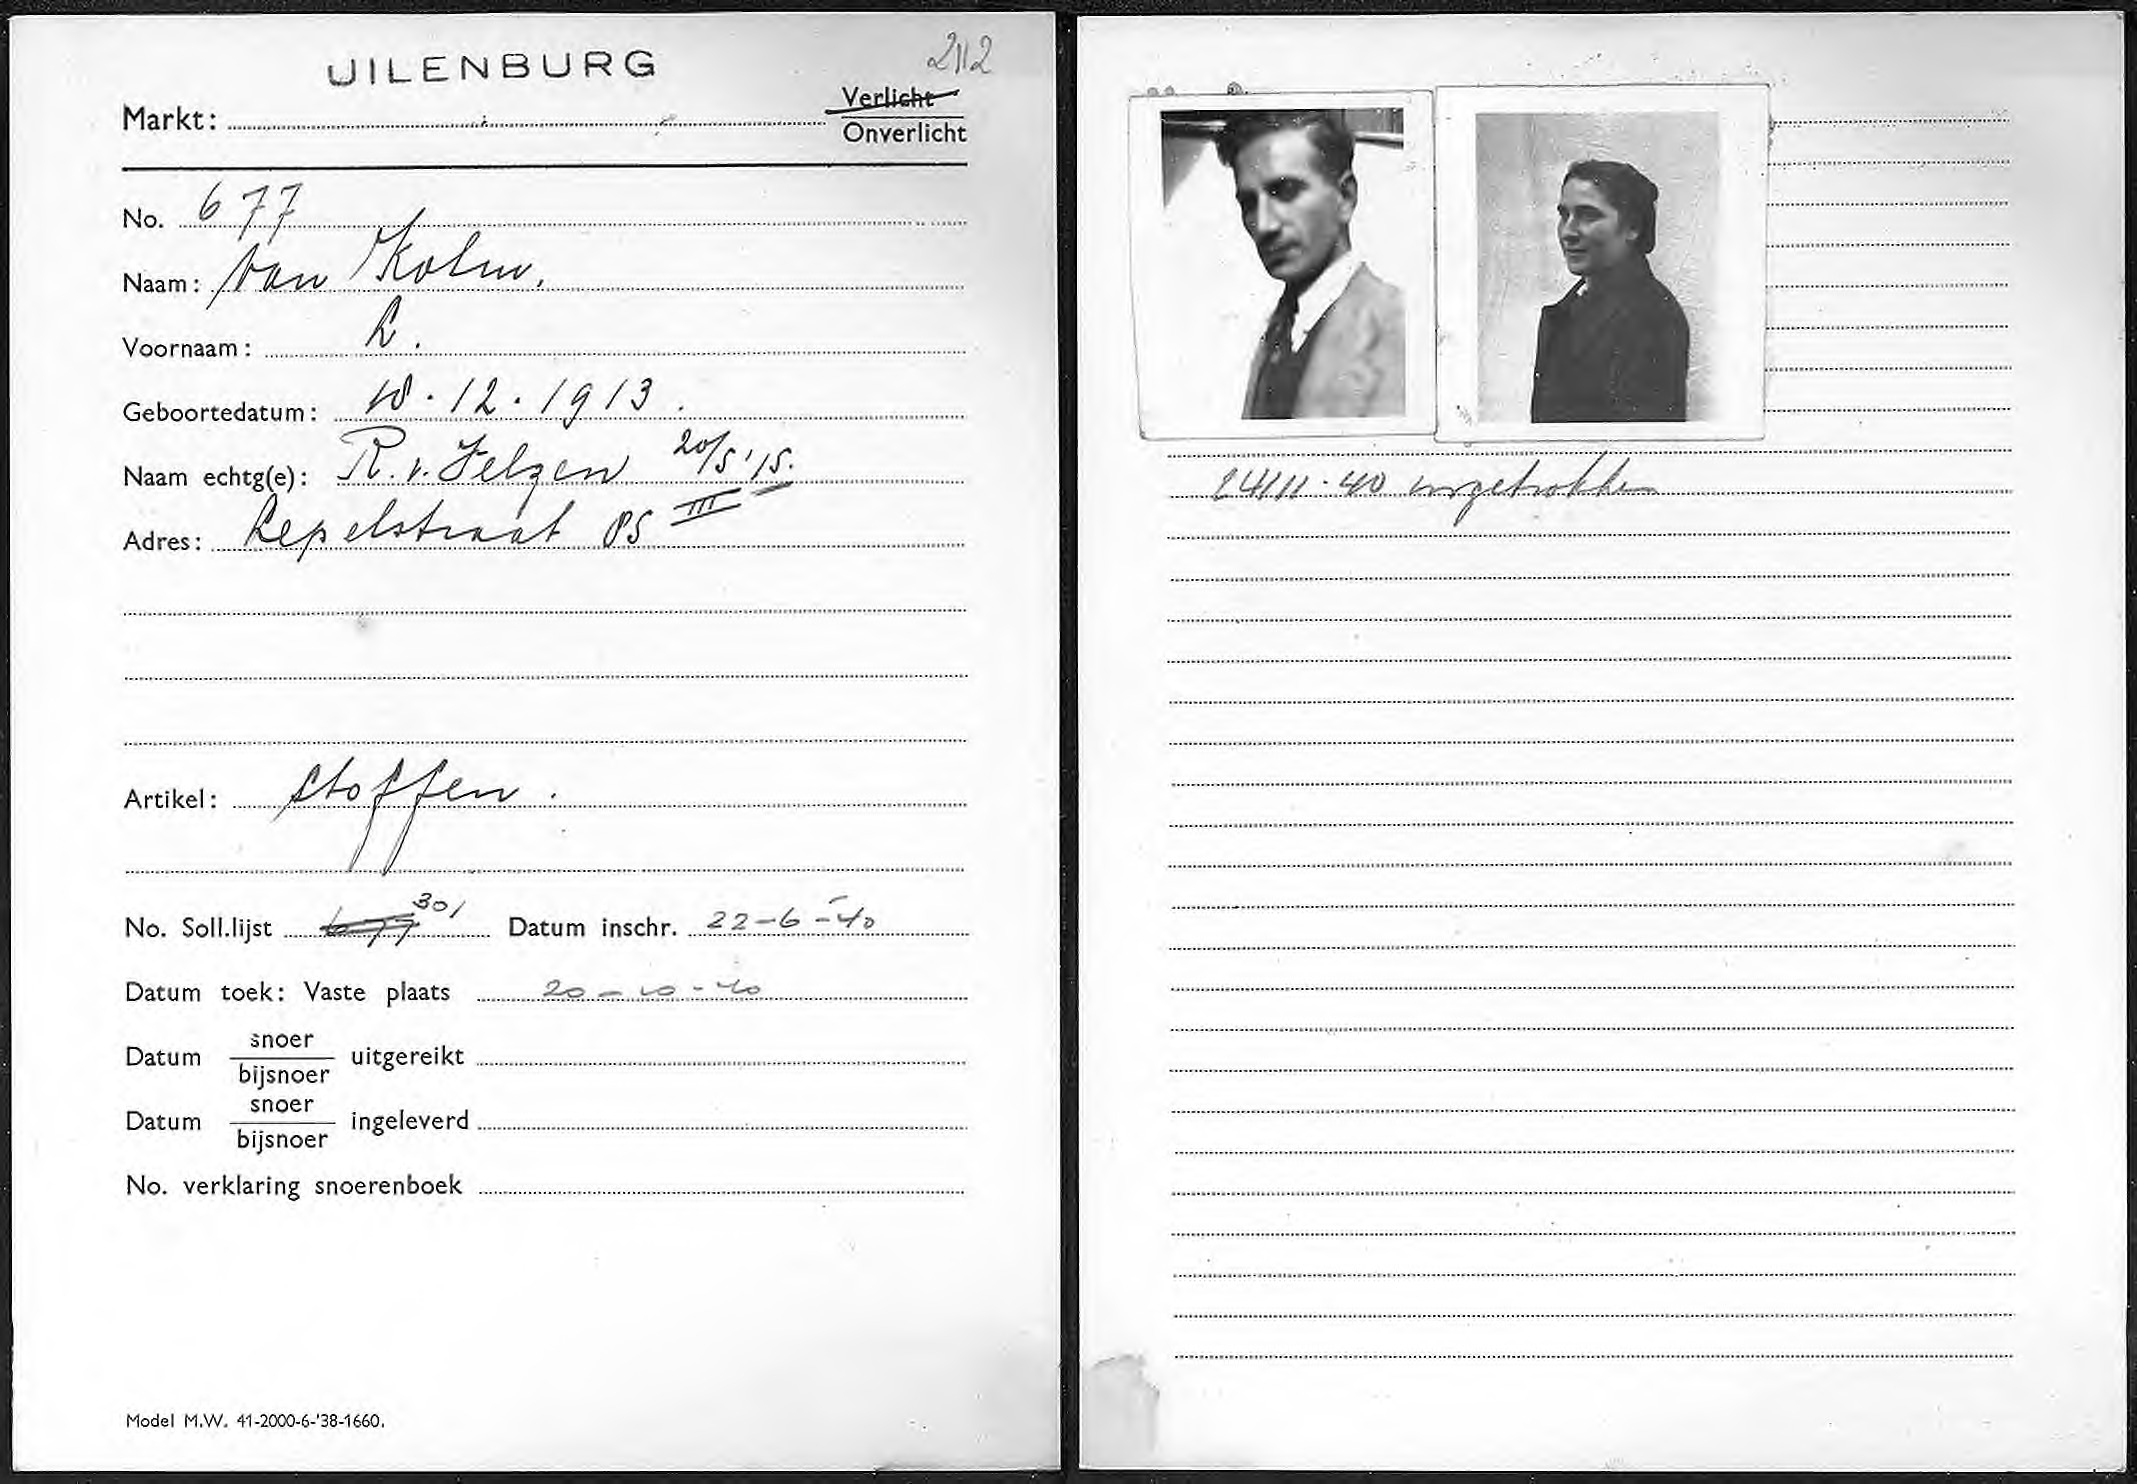 UILENBURG
2112
Markt:
Verlicht
Onverlicht
No. 677
Naam: van Kolm.
Voornaam: L.
Geboortedatum: 18.12.1913.
Naam echtg(e): R. v. Velzen 20/5 '15.
Adres: Lepelstraat 85 III
Artikel: stoffen.
No. Soll.lijst 677 301 Datum inschr. 22-6-'40
Datum toek: Vaste plaats 20-10-40
Datum snoer/bijsnoer uitgereikt
Datum snoer/bijsnoer ingeleverd
No. verklaring snoerenboek
Model M.W. 41-2000-6-'38-1660.
24/11-40 ingetrokken